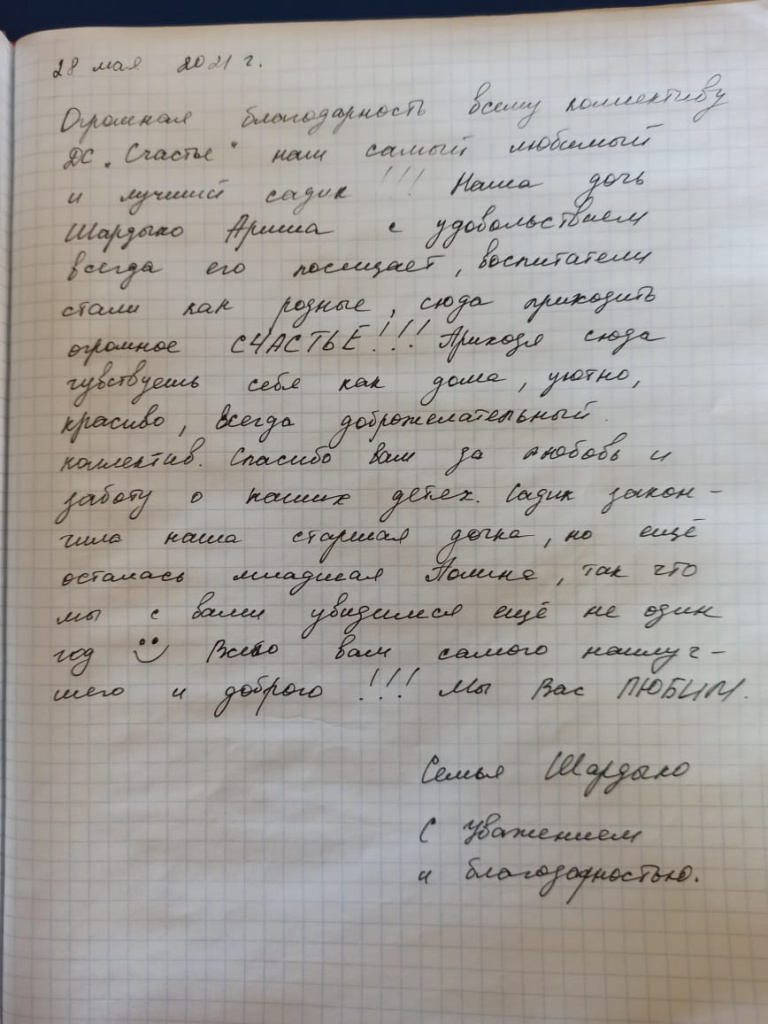 28 мая 2021 г.
Огромная благодарность всему коллективу
ДС "Счастье" наш самый любимый
и лучший садик !!! Наша дочь
Шардыко Ариша с удовольствием
всегда его посещает, воспитатели
стали как родные, сюда приходить
огромное СЧАСТЬЕ!!! Приходя сюда
чувствуешь себя как дома, уютно,
красиво, всегда доброжелательный
коллектив. Спасибо вам за любовь и
заботу о наших детях. Садик закон-
чила наша старшая дочка, но ещё
осталась младшая Полина, так что
мы с вами увидимся ещё не один
год Всего вам самого наилуч-
шего и доброго !!! Мы Вас ЛЮБИМ.
Семья Шардыко
С уважением
и благодарностью.